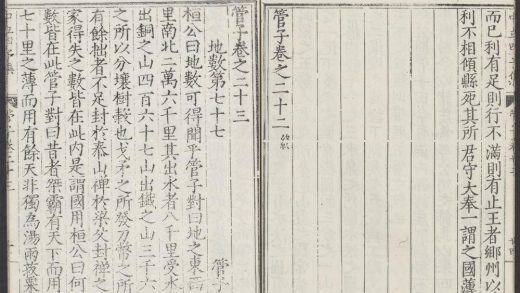 而已利有足則行不滿則有止王者鄉州以
利不相傾縣死其所君守大奉一謂之國薄
管子卷之二十二
管子卷之二十三
地數第七十七 管子
桓公曰地數可得聞乎管子對曰地之東西
里南北二萬六千里其出水者八千里受水
出銅之山四百六十七山出鐵之山三千六
之所以分壤樹穀也戈矛之所發刀幣之所
有餘拙者不足封於泰山禪於梁父封禪之
家得失之數皆在此內是謂國用桓公曰何
數皆在此管子對曰昔者桀霸有天下而用
七十里之薄而用有餘天非獨為湯雨菽粟